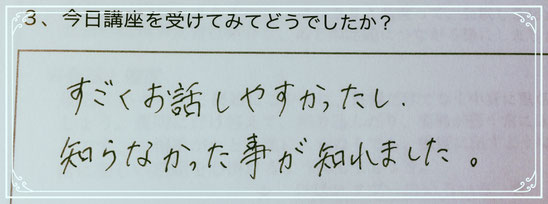 3、今日講座を受けてみてどうでしたか？
すごくお話しやすかったし、
知らなかった事が知れました。